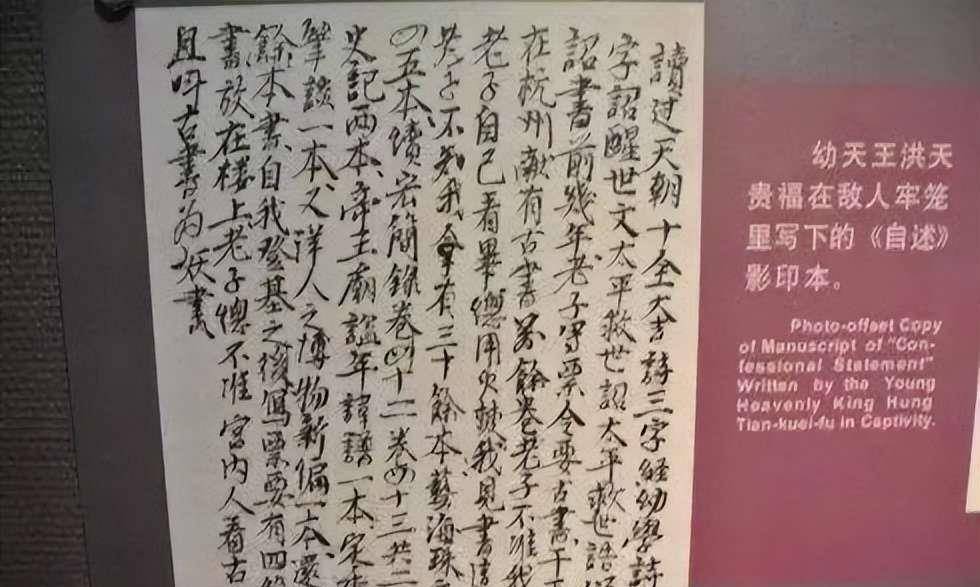 讀过天朝十全大吉詩三字經幼學詩
字詔醒世文太平救世詔太平救世誥
詔書前幾年老子寫票令要古書干王
在杭州献有古書萬餘卷老子不准我
老子自己看畢總用火焚我見書這
共子不知我拿有三十餘本藝海珠
四五本續宏簡錄卷四十二卷四十三共二
史記兩本帝王廟謚年諱譜一本定香
筆談一本又洋人之博物新编一本還
餘本書自我登基之後寫票要有四箱
書放在楼上老子總不准宫内人看古
且叫古書为妖書
幼天王洪天
贵福在敌人牢笼
里写下的《自述》
影印本。
Photo-offset Copy
of Manuscript of "Con-
fessional Statement"
Written by the Young
Heavenly King Hung
Tian-kuei-fu in Captivity.